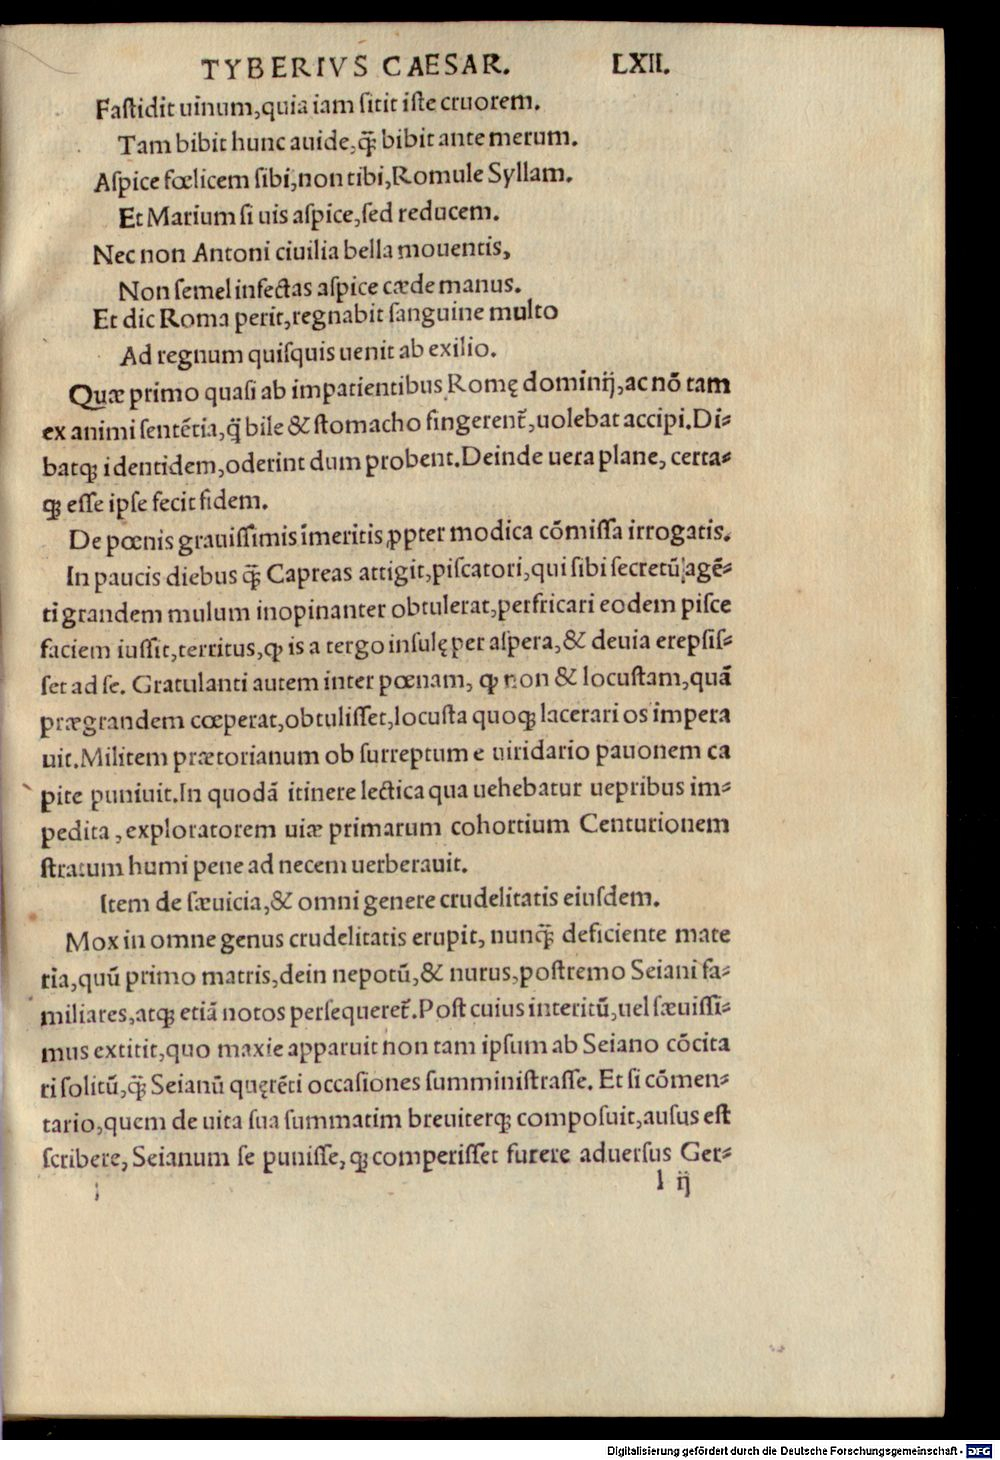 TYBERIVS CAESAR. LXII.
Faſtidit uinum,quia iam ſitit iſte cruorem.
Tam bibit hunc auide,q̃ bibit ante merum.
Aſpice fœlicem ſibi,non tibi,Romule Syllam.
Et Marium ſi uis aſpice,ſed reducem.
Nec non Antoni ciuilia bella mouentis,
Non ſemel infectas aſpice cæde manus.
Et dic Roma perit,regnabit ſanguine multo
Ad regnum quiſquis uenit ab exilio.
Quæ primo quaſi ab impatientibus Romę dominij,ac nõ tam
ex animi ſentẽtia,q̃ bile & ſtomacho fingerent̃,uolebat accipi.Di-
batq; identidem,oderint dum probent.Deinde uera plane, certa-
q; eſſe ipſe fecit fidem.
De pœnis grauiſſimis ĩmeritis ꝓpter modica cõmiſſa irrogatis.
In paucis diebus q̃ Capreas attigit,piſcatori,qui ſibi ſecretũ agẽ-
ti grandem mulum inopinanter obtulerat,perfricari eodem piſce
faciem iuſſit,territus,ꝙ is a tergo inſulę per aſpera,& deuia erepſiſ-
ſet ad ſe. Gratulanti autem inter pœnam, ꝙ non & locuſtam,quã
prægrandem cœperat,obtuliſſet,locuſta quoq; lacerari os impera
uit.Militem prætorianum ob ſurreptum e uiridario pauonem ca
pite puniuit.In quodã itinere lectica qua uehebatur uepribus im-
pedita,exploratorem uiæ primarum cohortium Centurionem
ſtratum humi pene ad necem uerberauit.
Item de ſæuicia,& omni genere crudelitatis eiuſdem.
Mox in omne genus crudelitatis erupit, nunq̃ deficiente mate
ria,quũ primo matris,dein nepotũ,& nurus,poſtremo Seiani fa-
miliares,atq; etiã notos perſequeret̃.Poſt cuius interitũ,uel ſæuiſſi-
mus extitit,quo maxie apparuit non tam ipſum ab Seiano cõcita
ri ſolitũ,q̃ Seianũ quęrẽti occaſiones ſumminiſtraſſe. Et ſi cõmen-
tario,quem de uita ſua ſummatim breuiterq; compoſuit,auſus eſt
ſcribere, Seianum ſe puniſſe, q; comperiſſet furere aduerſus Ger-
l ij
Digitalisierung gefördert durch die Deutsche Forschungsgemeinschaft - DFG